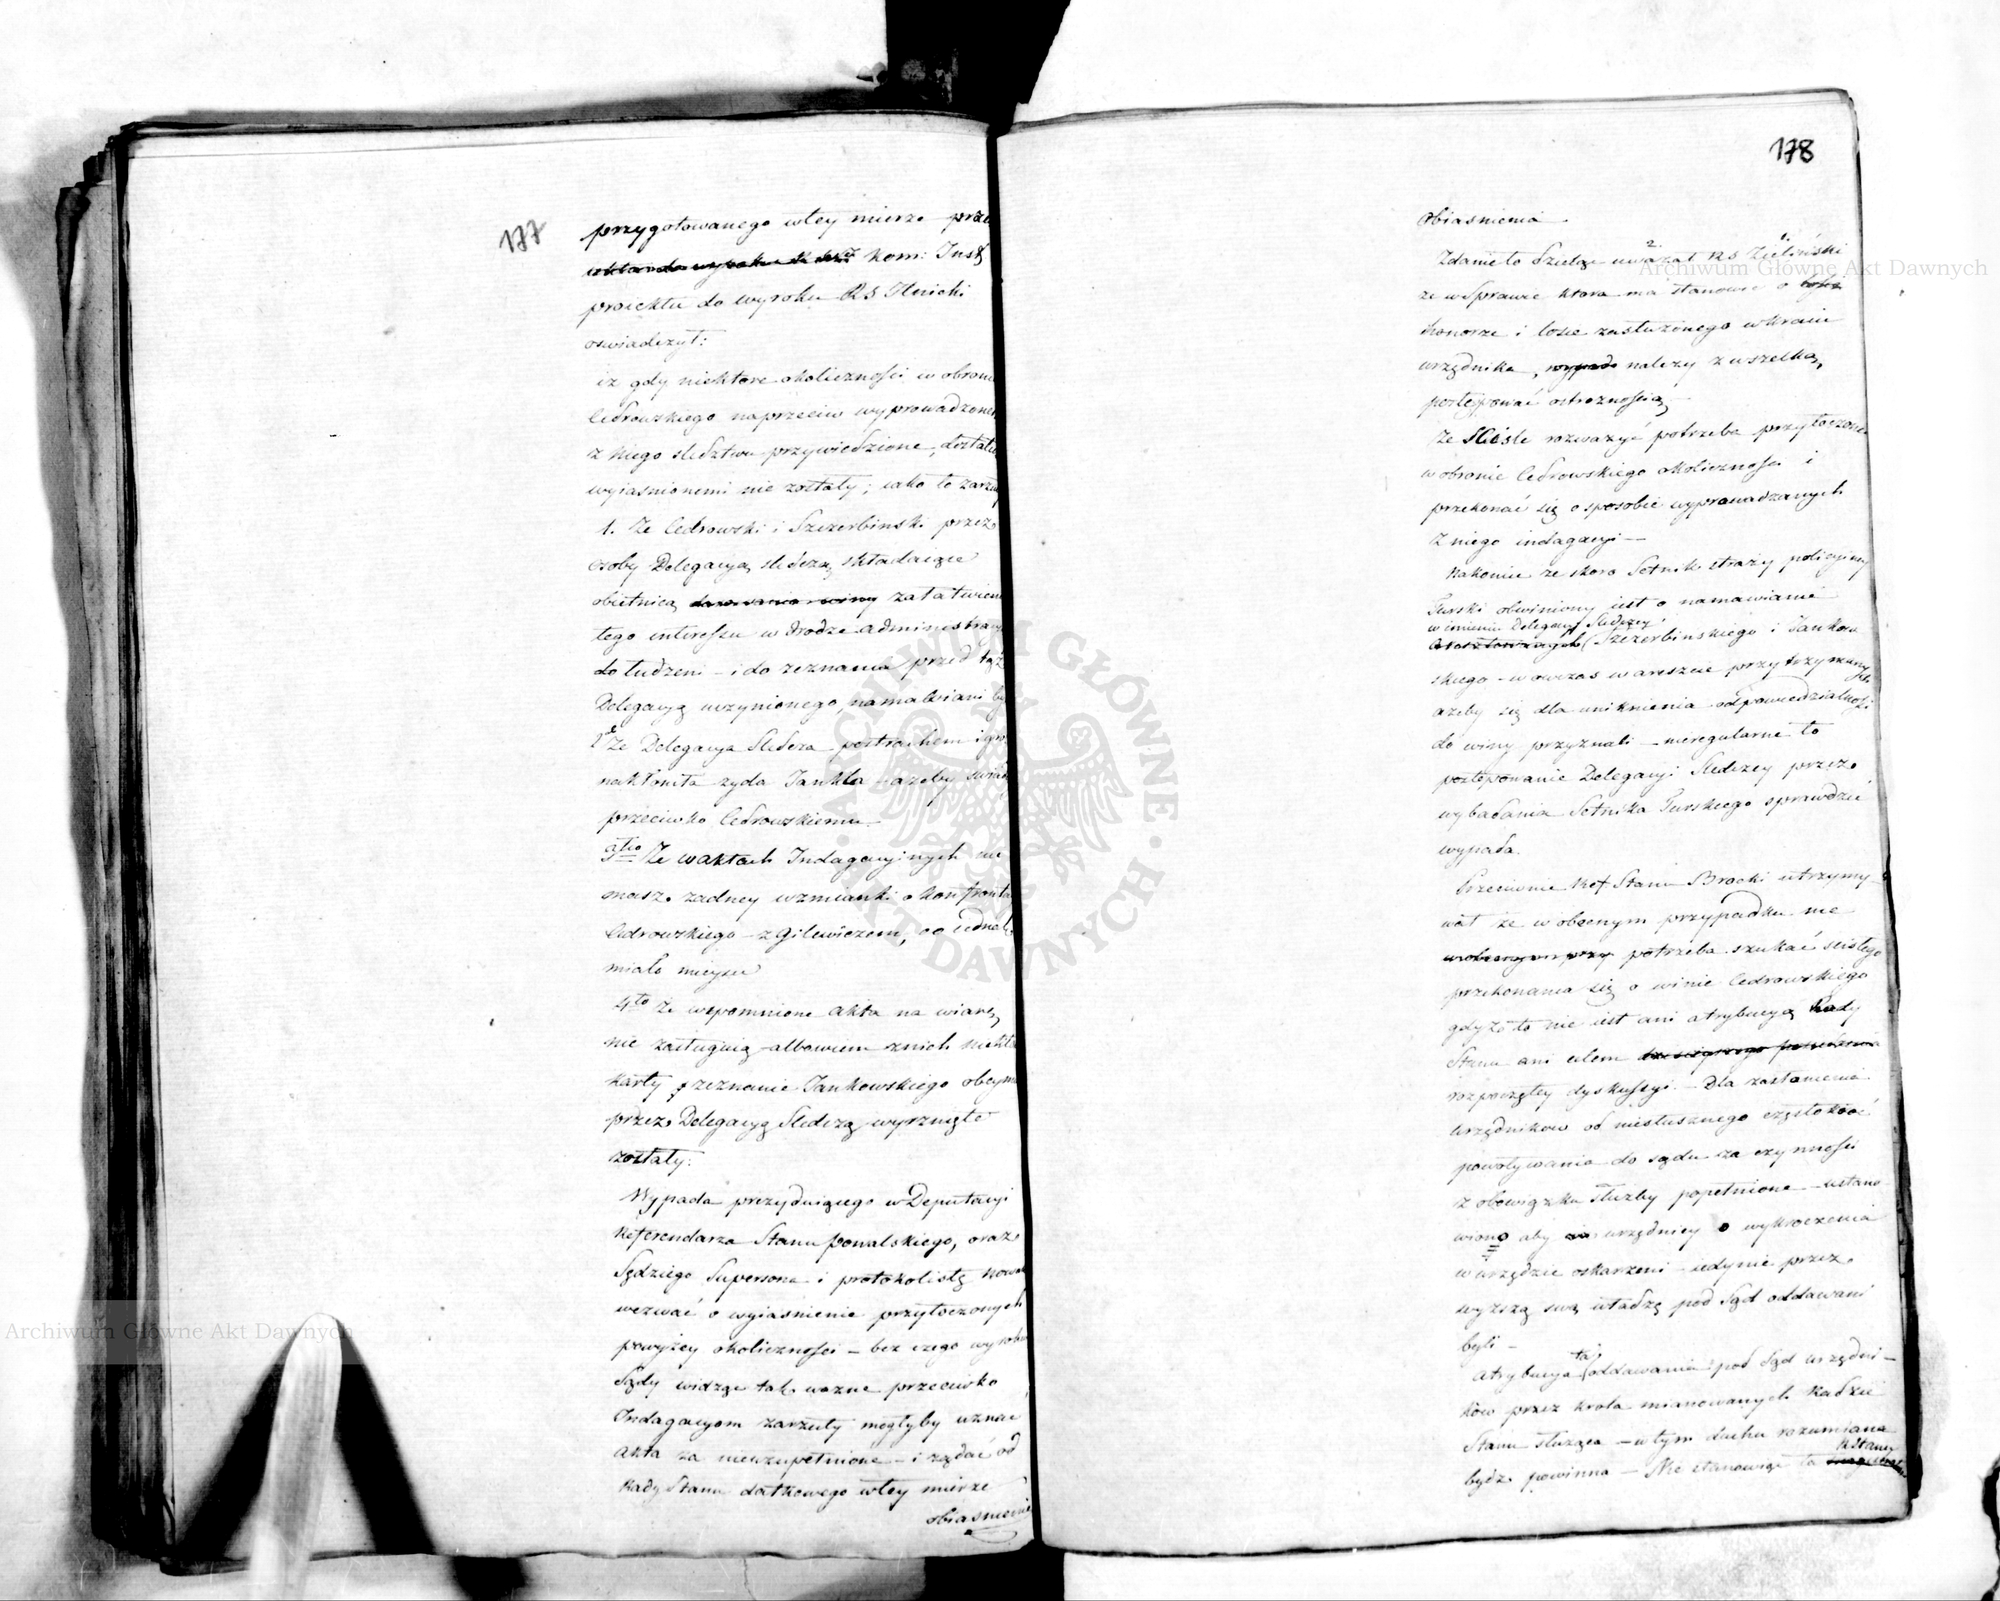 177
przygotowanego wtey mierze prze
Kom: Inst
proiektu do wyroku RS Ilnicki
oswiadczył:
iż gdy niektore okoliczności w obronie
Cedrowskiego naprzeciw wyprowadzone
z niego sledztwu przywiedzione, dostate
wyiasnionemi nie zostały; iako to zarzu
1. Że Cedrowski i Szczerbinski przez
osoby Delegacyą sledczą składaiące
obietnicą darowania winy załatwieni
tego interessu w drodze administracy
do łudzeni – i do zeznania przed tąż
Delegacyą uczynionego, namawiani by
2e Że Delegacya Sledcza postrachem i gro
nakłoniła żyda Jankla – ażeby swiad
przeciwko Cedrowskiemu.
3tio Że waktach Indagacyinych nie
masz żadney wzmianki o konfronta
Cedrowskiego – z Gilewiczem, co iednak
miało mieysce
4to Że wspomnione akta na wiarę
nie zasługuią – albowiem znich niektó
karty zeznanie Jankowskiego obeym
przez Delegacyą Sledczą wyrznięte
zostały:
Wypada prezyduiącego w Deputacyi
Referendarza Stanu Powalskiego, oraz
Sędziego Supersona i protokolistę Nowak
wezwać o wyiasnienie przytoczonych
powyżey okoliczności – bez czego wyrok
Sądy widząc tak ważne przeciwko
Indagacyom zarzuty mogłyby uznać
akta za nieuzupełnione – i żądać od
Rady Stanu datkowego wtey mierze
obiasnienia
178
obiasnienia.
2. 1.
Zdanie to Dzieląc uważał RS Zieliński
że w Sprawie ktora ma stanowić o
honorze i losie zasłużonego w kraiu
urzędnika, należy z wszelką
postępować ostrożnością –
Że Sciśle rozważyć potrzeba przytoczone
w obronie Cedrowskiego okoliczności i
przekonać się o sposobie wyprowadzanych
z niego indagacyi –
Nakoniec że skoro Setnik straży policyiney
Turski obwiniony iest o namawianie
w imieniu Delegacyi Sledczey
Szczerbinskiego i Jankow
skiego – w owczas w areszcie przytrzymanych
ażeby się dla uniknienia odpowiedzialności
do winy przyznali – nieregularne to
postępowanie Delegacyi Sledczey przez
wybadania Setnika Turskiego sprawdzić
wypada.
Przeciwnie Ref Stanu Brocki utrzymy-
wał że w obecnym przypadku nie
potrzeba szukać scisłego
przekonania się o winie Cedrowskiego
gdyż to nie iest ani atrybucyą Rady
Stanu ani celem
rozpoczętey dyskussyi. – Dla zasłonienia
urzędnikow od niesłusznego częstokroć
powoływania do sądu za czynności
z obowiązku służby popełnione – ustano
wiono aby urzędnicy o wykroczenia
w urzędzie oskarżeni – iedynie przez
wyższą swą władzę pod sąd oddawani
byli –
ta
Atrybucya oddawania pod Sąd urzędni-
ków przez Krola mianowanych Radzie
Stanu służąca – w tym duchu rozumiana
RStanu
bydź powinna – Nie stanowiąc ta
Archiwum Główne Akt Dawnych
Archiwum Główne Akt Dawnych
ARCHIWUM GŁÓWNE · AKT DAWNYCH ·